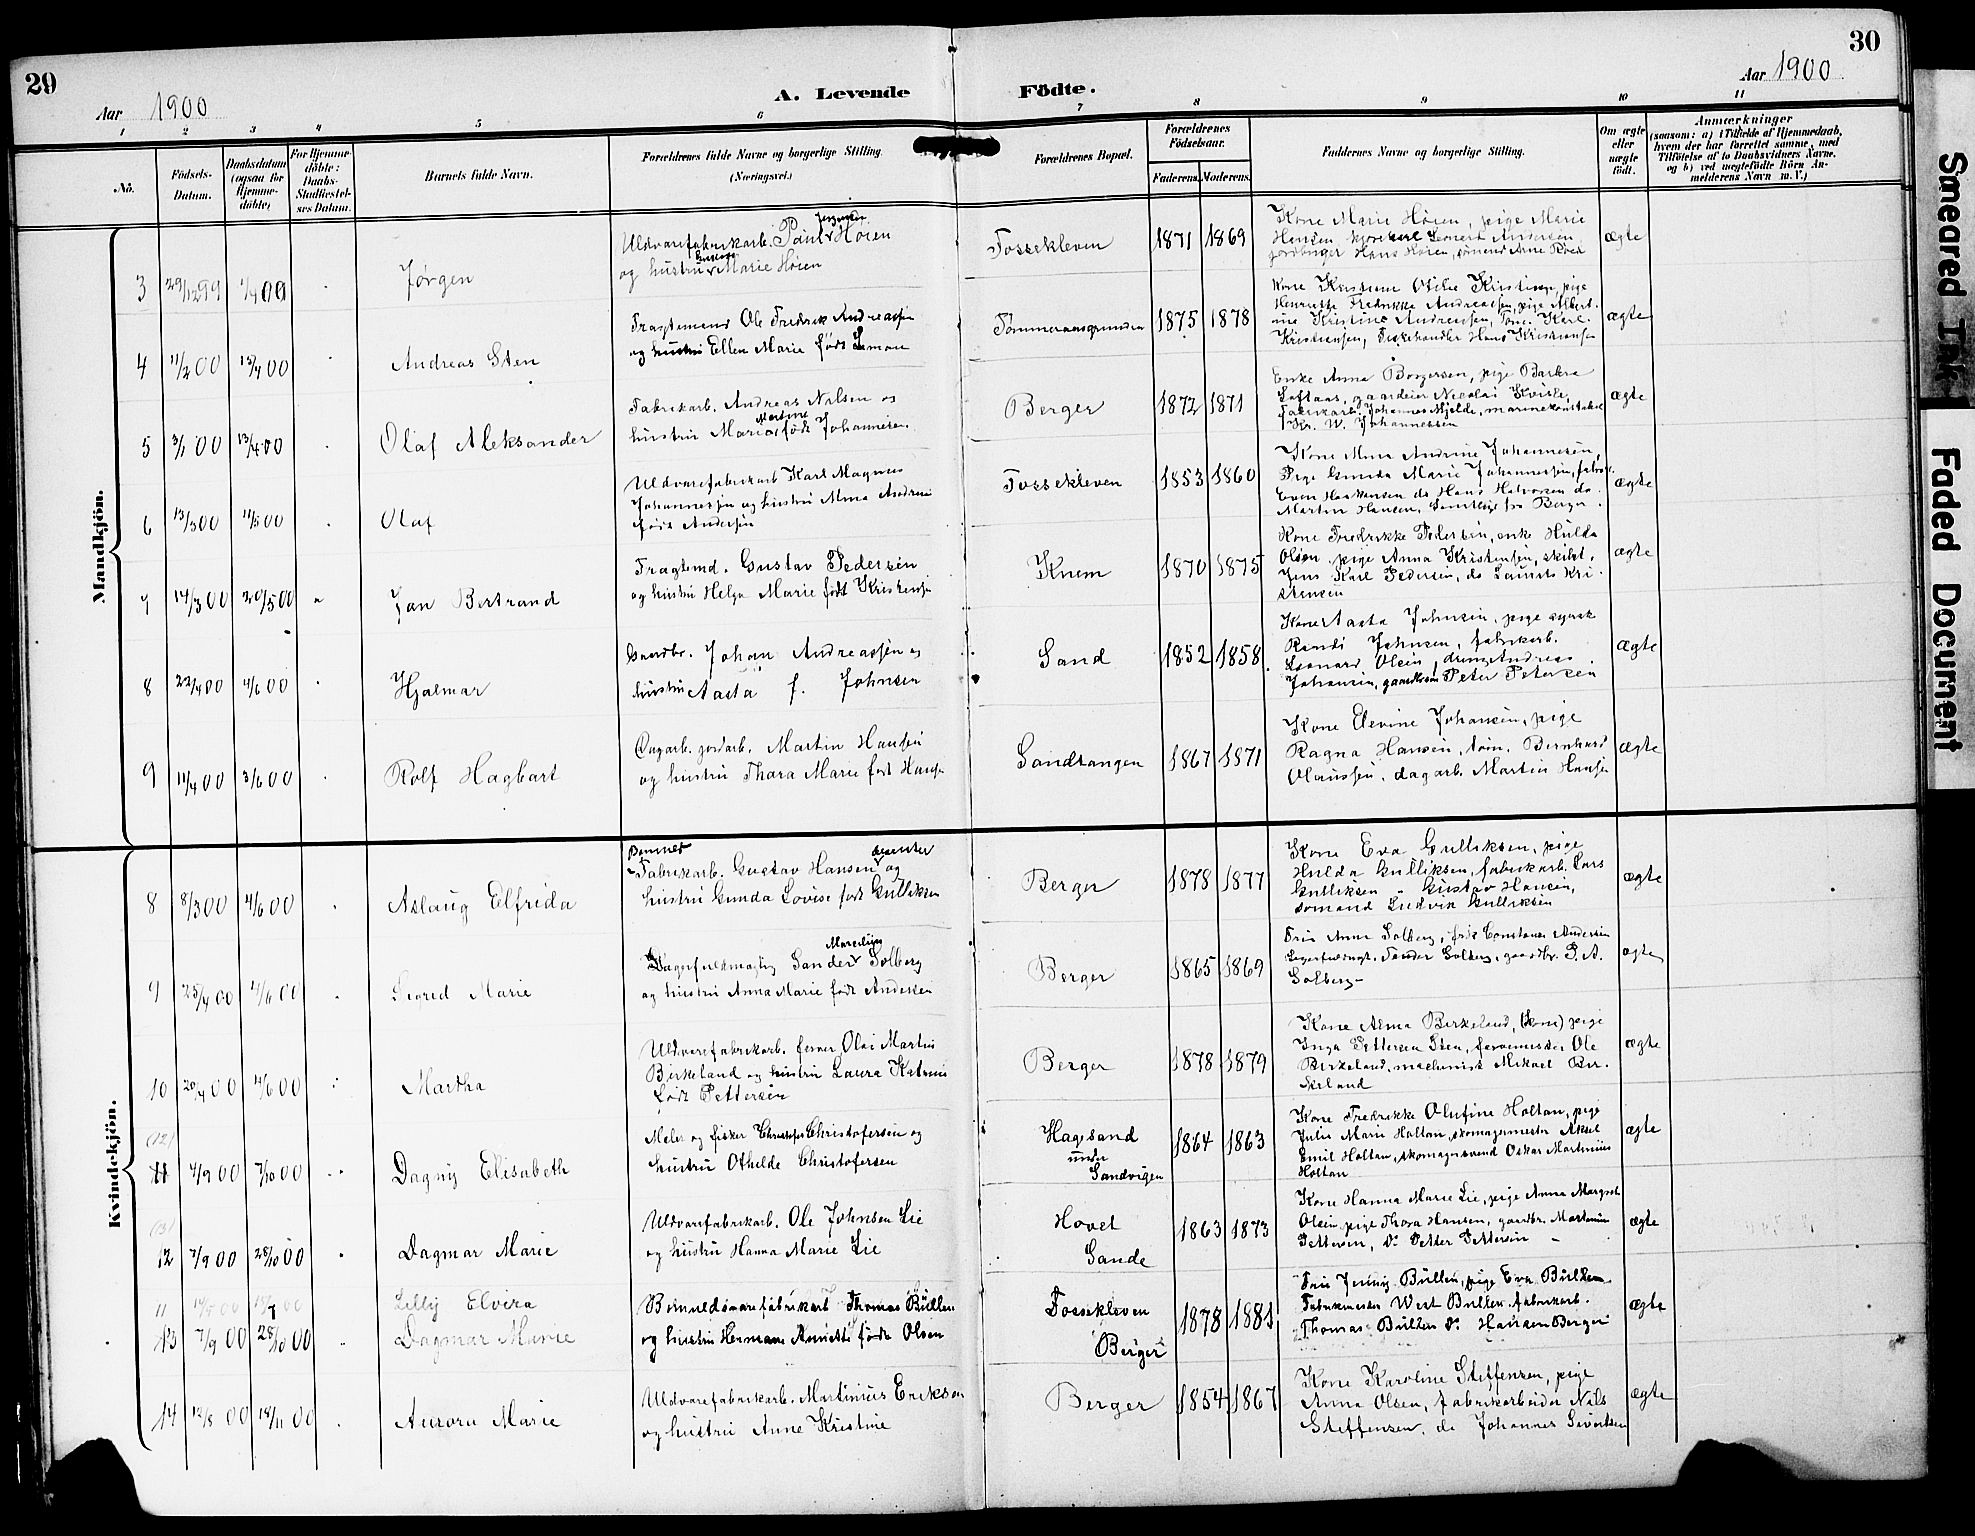 29
30
Aar 1900
A. Levende
Födte.
Aar 1900
1 2 3 4 5 6 7 8 9 10 11
No.
Födsels-
Datum.
Daabsdatum
(ogsaa for
Hjemme-
döbte)
For Hjemme-
döbte:
Daabs-
Stadfæstel-
ses Datum.
Barnets fulde Navn.
Forældrenes fulde Navne og borgerlige Stilling.
(Næringsvei.)
Forældrenes Bopæl.
Forældrenes
Födselsaar.
Faderens. Moderens.
Faddernes Navne og borgerlige Stilling.
Om ægte
eller
uægte
födt.
Anmærkninger
(saasom: a) i Tilfælde af Hjemmedaab,
hvem der har forrettet samme, med
Tilföielse af to Daabsvidners Navne,
og b) ved uægtefödte Börn An-
melderens Navn m. V.)
Mandkjön.
3 29/12 99 00 Jørgen
Uldvarefabrikarb. Paul Høien
og hustru Marie Høien
Fossekleven 1871 1869
Kone Marie Høien, pige Marie
Hansen Andersen
Hans Høien, Anne
ægte
4 11/2 00 15/4 00 Andreas Sten
Fragtemand Ole Fredrik Andreassen
og hustru Ellen Marie født Simon
1875 1878
Kone Kristiane Otilie Kristiansen, pige
Henriette Fredrikke Andreassen, pige Albert-
ine Kristine Andreassen, Tøm. Karl
Kristiansen, Fiskehandler Hans Kristiansen
ægte
5 3/1 00 13/4 00 Olaf Aleksander
Fabrikarb. Andreas Nilsen og
hustru Marie Martine født Johannesen
Berger 1872 1871
Enke Anna Borgersen, pige Barbra
Loftaas, gaardeier Nicolai
Fabrikarb. Johannes Mjelde,
Kr. W. Johannessen
ægte
6 13/3 00 11/5 00 Olaf
Uldvarefabrikarb Karl Magnus
Johannessen og hustru Alma Andrine
født Andersen
Fossekleven 1853 1860
Kone Alma Andrine Johannesen,
Pige Gunda Marie Johannessen,
Even Haakensen do Hans Halvorsen do
Martin Hansen, Samtlige fra Berger.
ægte
7 14/3 00 20/5 00 Jan Bertrand
Fragtemd. Gustav Pedersen
og hustru Helga Marie født Kristensen
Knem 1870 1875
Kone Fredrikke Pedersen, enke Hulda
Olsen, pige Anna Kristensen,
Jens Karl Pedersen, do Kri-
stensen
ægte
8 22/4 00 4/6 00 Hjalmar
Gaardbr. Johan Andreassen og
hustru Aasta f. Johnsen
Sand 1852 1858
Kone Aasta Johnsen, pige
Randi Johnsen, fabrikarb.
Leonard Olsen, dreng Andreas
Johansen, Peter Petersen
ægte
9 11/4 00 3/6 00 Rolf Hagbart
Dagarb. jordarb. Martin Hansen
og hustru Thora Marie født Hansen
Sandtangen 1867 1871
Kone Elevine Johansen, pige
Ragna Hansen, tøm. Bernhard
Olaussen, dagarb. Martin Hansen
ægte
Kvindekjön.
8 8/3 00 4/6 00 Aslaug Elfrida
Bommes
Fabrikarb. Gustav Hansen og
hustru Gunda Lovise født Gulliksen
Berger 1878 1877
Kone Eva Gulliksen, pige
Hulda Gulliksen, fabrikarb. Lars
Gulliksen - Gustav Hansen,
sømand Ludvik Gulliksen
ægte
9 25/4 00 4/6 00 Sigred Marie
Lagerfuldmægtig Sander Marcelius Solberg
og hustru Anna Marie født Andersen
Berger 1865 1869
Fru Anna Solberg, frk Constance Andersen
Lagerfuldmgt. Sander Solberg, gaardbr. P. A.
Solberg
ægte
10 20/4 00 4/6 00 Martha
Uldvarefabrikarb. farver Olai Martin
Birkeland og hustru Laura Katrine
født Pettersen
Berger 1878 1879
Kone Alma Birkeland, (kone) pige
Inga Pettersen Sten, farvemester Ole
Birkeland, maskinist Mikael Bir-
keland
ægte
(12)
11 4/9 00 7/10 00 Dagny Elisabeth
Maler og fisker Christoffer Christofersen og
hustru Othelde Christofersen
Hagesand
under
Sandvigen 1864 1863
Kone Fredrikke Olufine Holtan, pige
Julie Marie Holtan, skomagermester Aksel
Emil Holtan, skomagersvend Oskar Martinius
Holtan
ægte
(13)
12 7/9 00 28/10 00 Dagmar Marie
Uldvarefabrikarb. Ole Johnsen Lie
og hustru Hanna Marie Lie
Hovet
Sande 1863 1873
Kone Hanna Marie Lie, pige Anna Margret
Olsen, pige Thora Hansen, gaardbr. Martinius
Pettersen, Do Petter Pettersen
ægte
11 00 00 Lilly Elvira
13 7/9 00 28/10 00 Dagmar Marie
Bomuldsvarefabrikarb Thomas Bullen
og hustru Hermane Annette født Olsen
Fossekleven
Berger 1878 1881
Fru Jenny Bullen, pige Eva Bullen
Fabrikmester West Bullen, fabrikarb.
Thomas Bullen Do Hansen Berger
ægte
14 12/8 00 18/11 00 Aurora Marie
Uldvarefabrikarb. Martinius Erikson
og hustru Anne Kristine
Berger 1854 1867
Kone Karoline Steffensen, pige
Anna Olsen, fabrikarbeider Nils
Steffensen, do Johannes Sivertsen
ægte
Smeared Ink
Faded Document